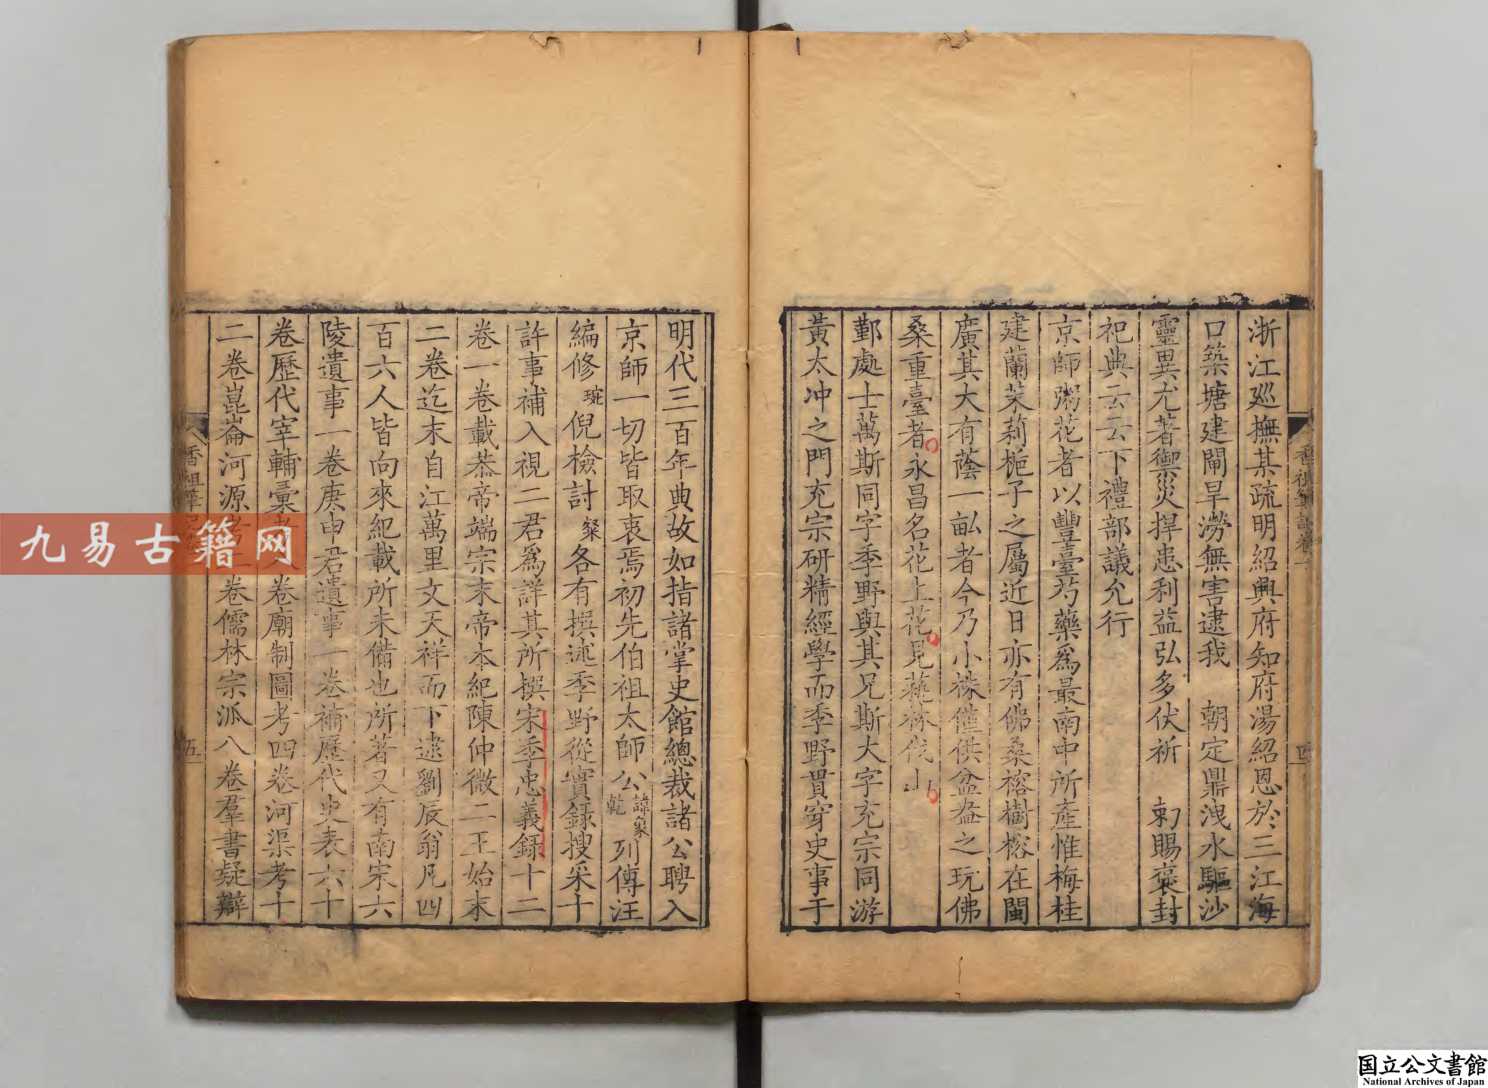 浙江廵撫某疏明紹興府知府湯紹恩於三江海
口築塘建閘旱澇無害逮我　朝定鼎洩水驅沙
靈異尤著禦災捍患利益弘多伏祈　勅賜褒封
祀典云云下禮部議允行
京師鬻花者以豐臺芍藥爲最南中所產惟梅桂
建蘭茉莉梔子之屬近日亦有佛桑榕樹榕在閩
廣其大有蔭一畝者今乃小株僅供盆盎之玩佛
桑重臺者永昌名花上花見蓺林伐山
鄞處士萬斯同字季野與其兄斯大字充宗同游
黃太冲之門充宗研精經學而季野貫穿史事于
香祖筆記卷一
四
明代三百年典故如指諸掌史館總裁諸公聘入
京師一切皆取衷焉初先伯祖太師公諱象乾列傳汪
編修琬倪檢討粲各有撰述季野從實錄搜采十
許事補入視二君爲詳其所撰宋季忠義錄十二
卷一卷載恭帝端宗末帝本紀陳仲微二王始末
二卷迄末自江萬里文天祥而下逮劉辰翁凡四
百六人皆向來紀載所未備也所著又有南宋六
陵遺事一卷庚申君遺事一卷補歷代史表六十
卷歷代宰輔彙考八卷廟制圖考四卷河渠考十
二卷崑崙河源考二卷儒林宗派八卷羣書疑辯
香祖筆記
五
九易古籍网
国立公文書館
National Archives of Japan